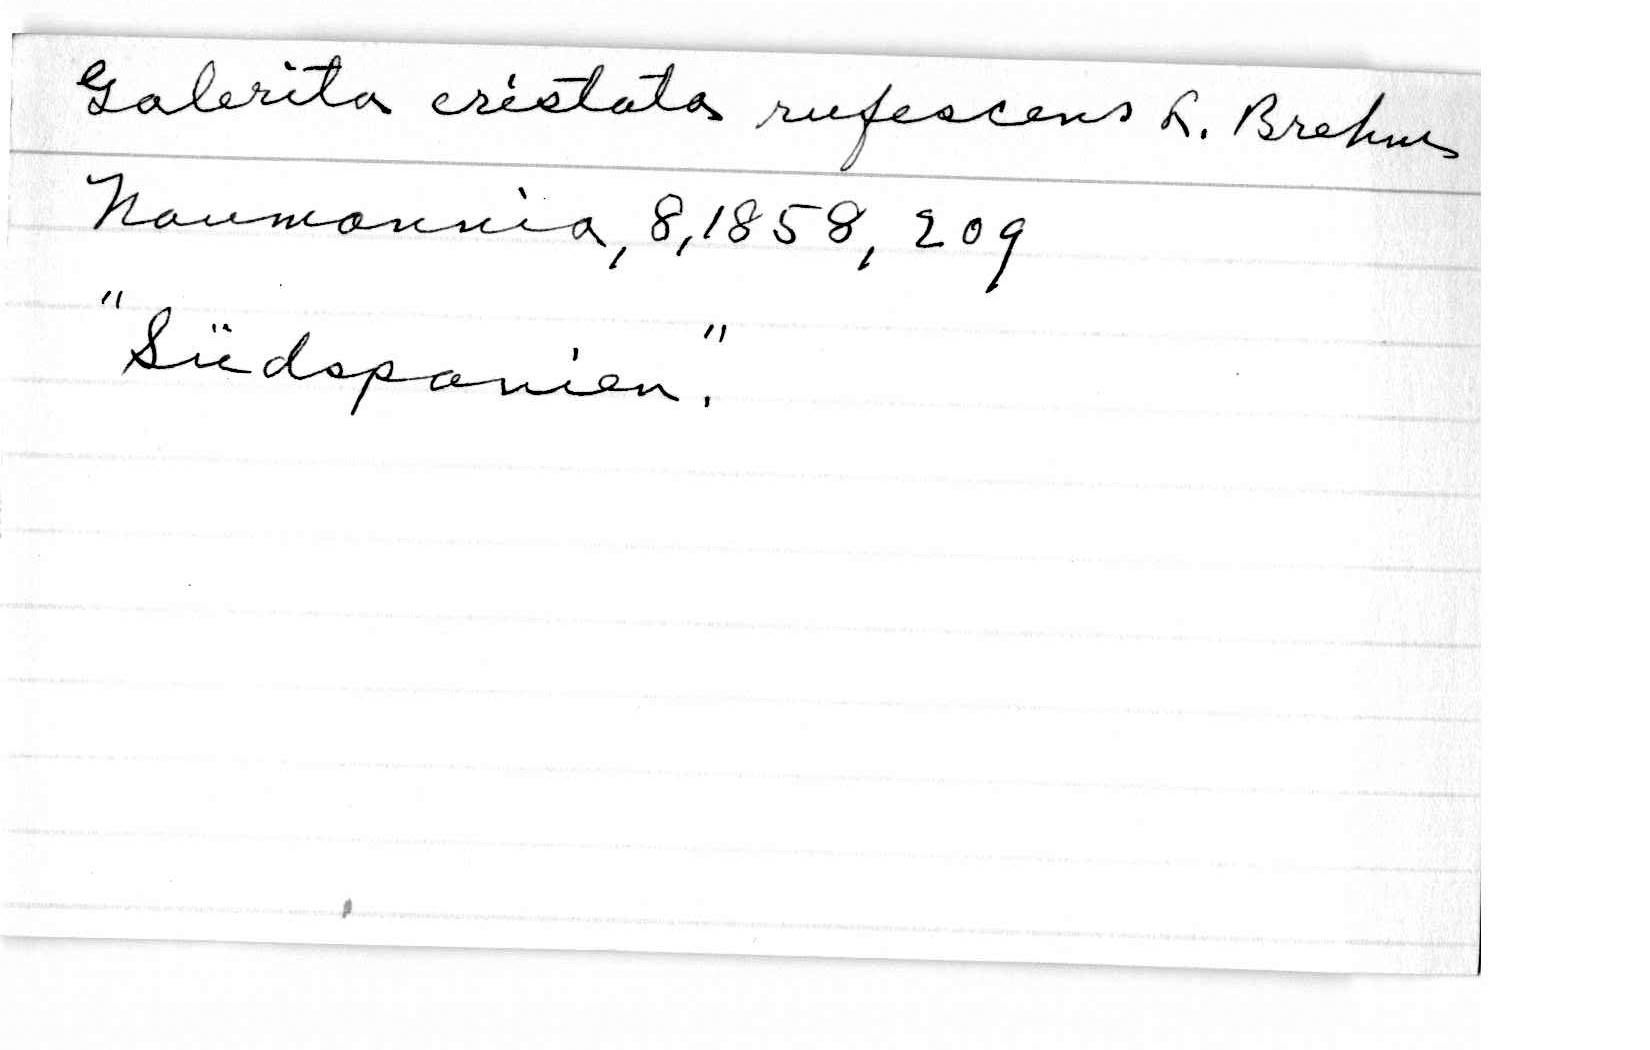 Galerita cristata rufescens L. Brehm
Naumannia, 8, 1858, 209
"Südspanien."